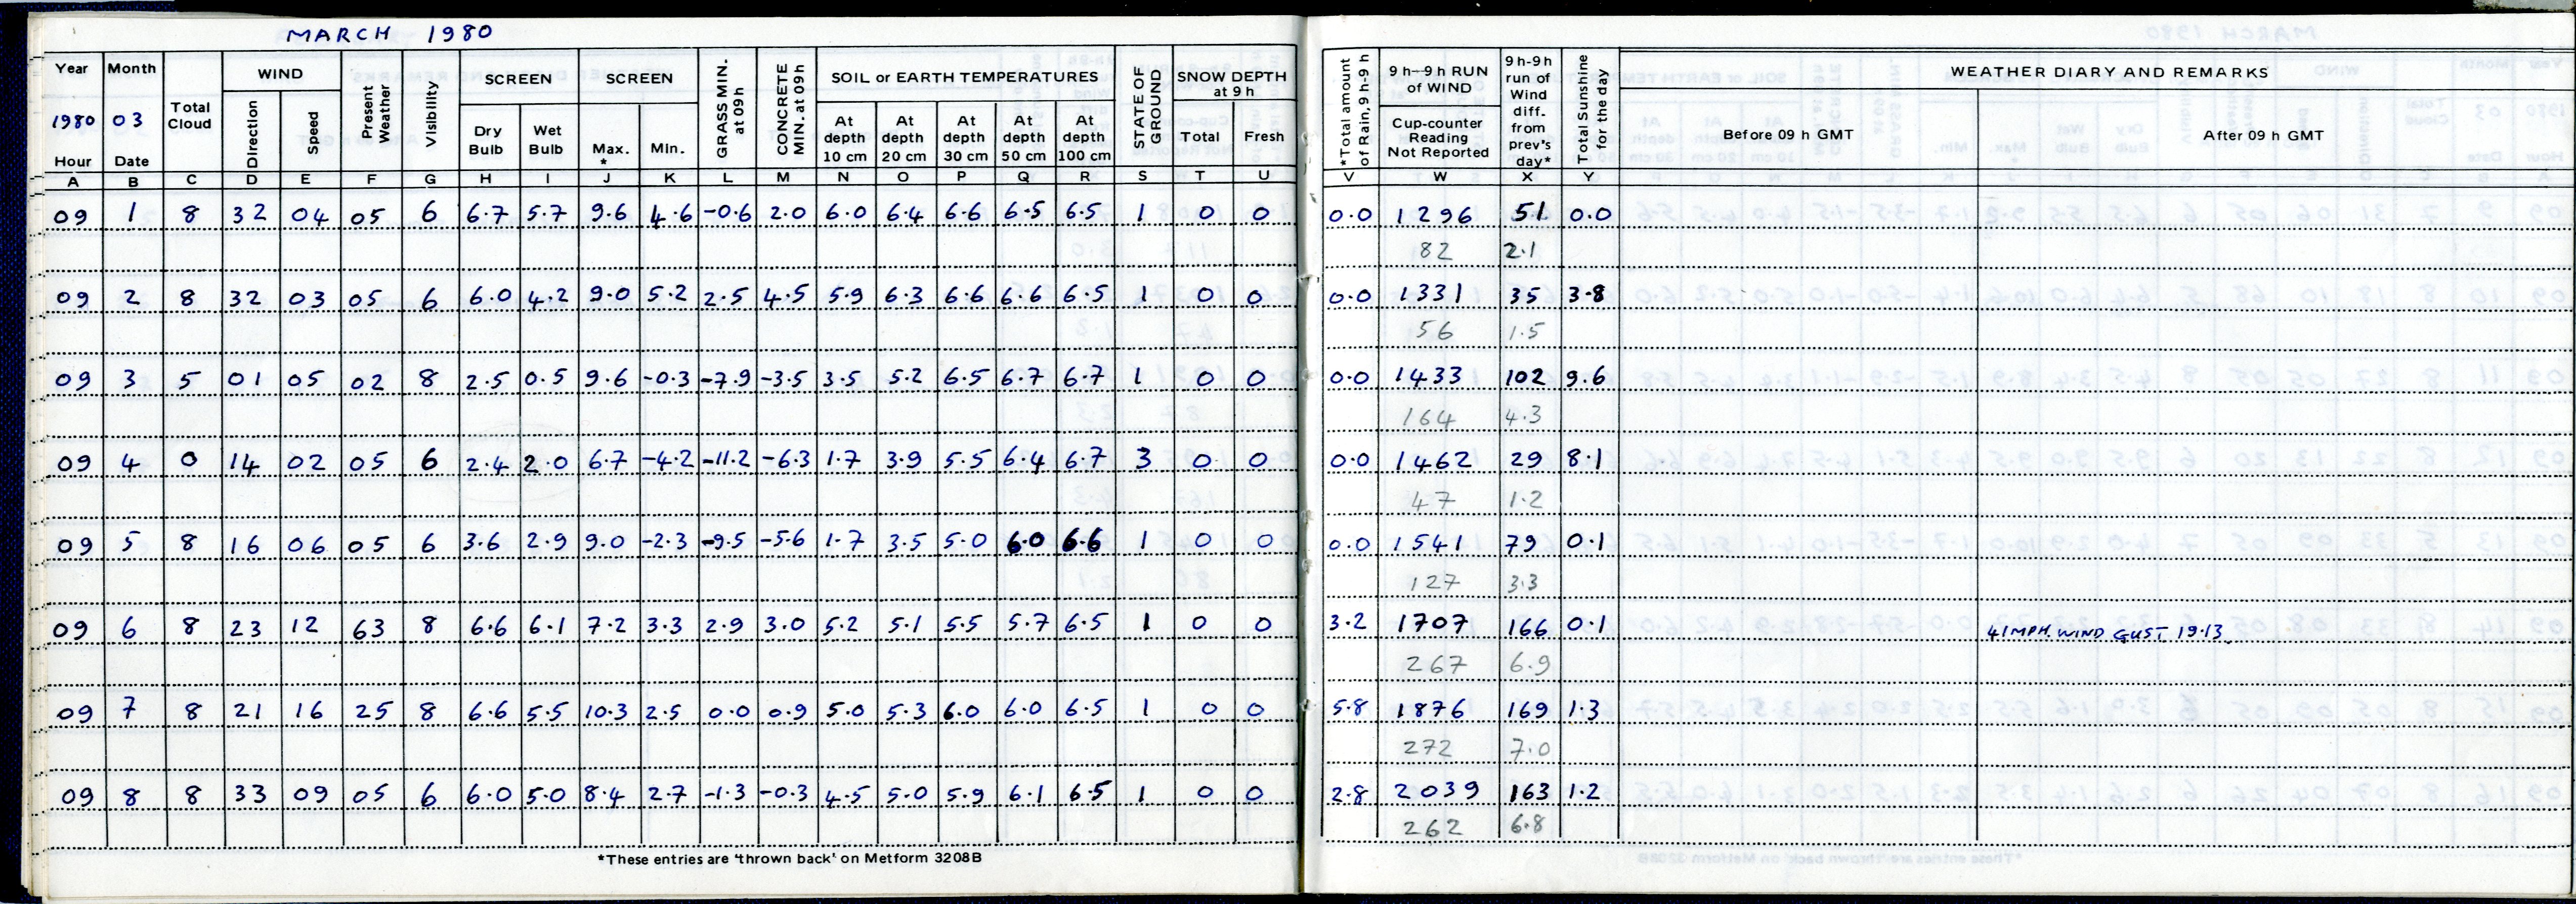 MARCH 1980
Year Month Total Cloud WIND Present Weather Visibility SCREEN SCREEN GRASS MIN. at 09h CONCRETE MIN. at 09h SOIL or EARTH TEMPERATURES STATE OF GROUND SNOW DEPTH at 9 h *Total amount of Rain, 9 h-9 h 9 h–9 h RUN of WIND 9 h-9h run of Wind diff. from prev's day* Total Sunshine for the day WEATHER DIARY AND REMARKS
1980 03 Direction Speed Dry Bulb Wet Bulb Max. * Min. At depth 10 cm At depth 20 cm At depth 30 cm At depth 50 cm At depth 100 cm Total Fresh Cup-counter Reading Not Reported Before 09 h GMT After 09 h GMT
Hour Date
A B C D E F G H I J K L M N O P Q R S T U V W X Y
09 1 8 32 04 05 6 6.7 5.7 9.6 4.6 -0.6 2.0 6.0 6.4 6.6 6.5 6.5 1 0 0 0.0 1296 51 0.0
82 2.1
09 2 8 32 03 05 6 6.0 4.2 9.0 5.2 2.5 4.5 5.9 6.3 6.6 6.6 6.5 1 0 0 0.0 1331 35 3.8
56 1.5
09 3 5 01 05 02 8 2.5 0.5 9.6 -0.3 -7.9 -3.5 3.5 5.2 6.5 6.7 6.7 1 0 0 0.0 1433 102 9.6
164 4.3
09 4 0 14 02 05 6 2.4 2.0 6.7 -4.2 -11.2 -6.3 1.7 3.9 5.5 6.4 6.7 3 0 0 0.0 1462 29 8.1
47 1.2
09 5 8 16 06 05 6 3.6 2.9 9.0 -2.3 -9.5 -5.6 1.7 3.5 5.0 6.0 6.6 1 0 0 0.0 1541 79 0.1
127 3.3
09 6 8 23 12 63 8 6.6 6.1 7.2 3.3 2.9 3.0 5.2 5.1 5.5 5.7 6.5 1 0 0 3.2 1707 166 0.1 41MPH. WIND GUST 19.13.
267 6.9
09 7 8 21 16 25 8 6.6 5.5 10.3 2.5 0.0 0.9 5.0 5.3 6.0 6.0 6.5 1 0 0 5.8 1876 169 1.3
272 7.0
09 8 8 33 09 05 6 6.0 5.0 8.4 2.7 -1.3 -0.3 4.5 5.0 5.9 6.1 6.5 1 0 0 2.8 2039 163 1.2
262 6.8
*These entries are 'thrown back' on Metform 3208B